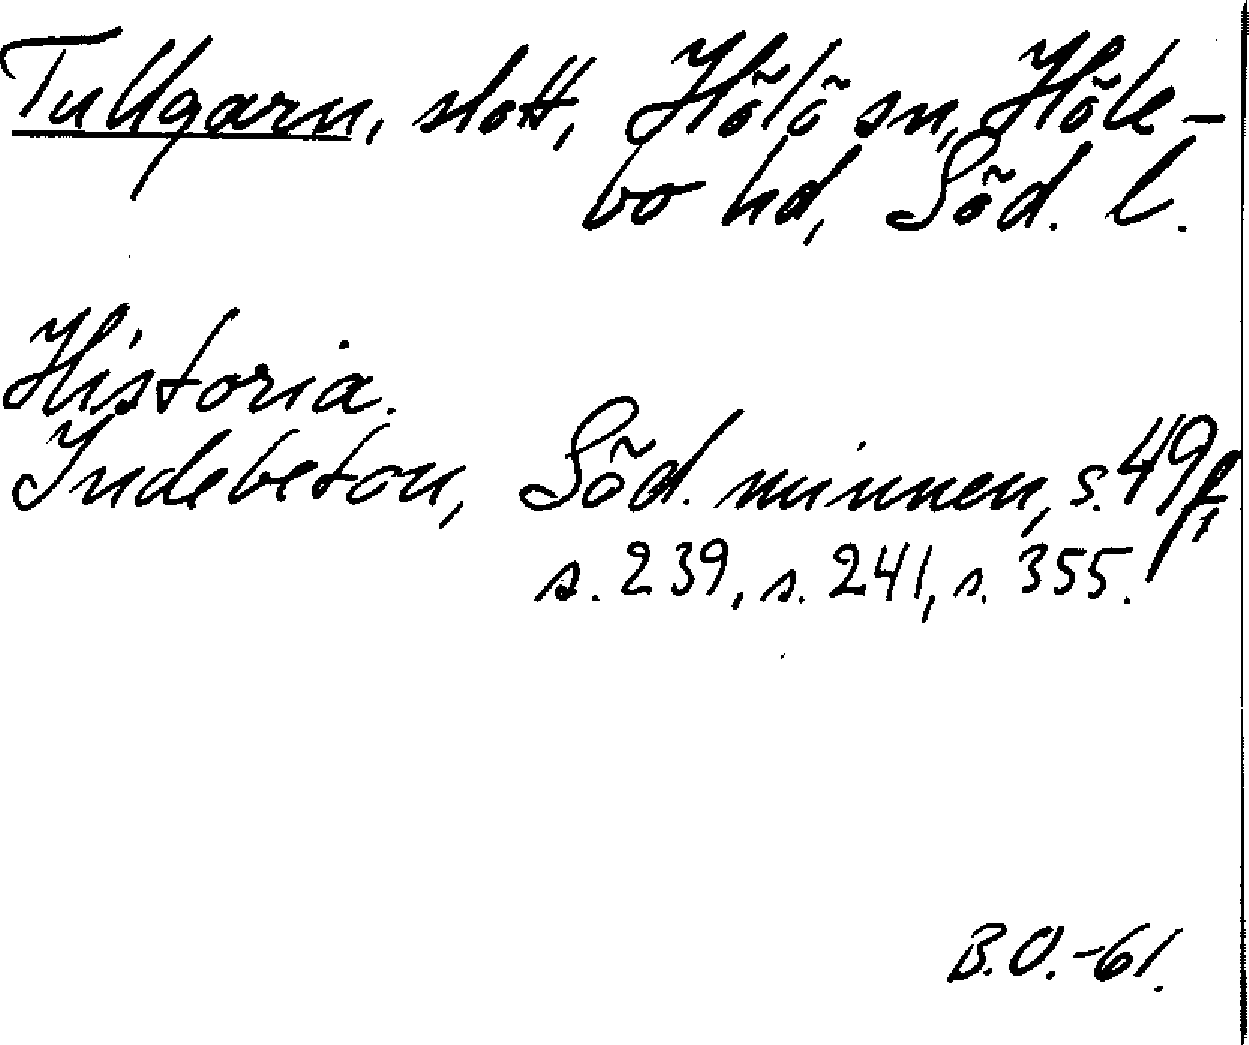 Tullgarn, slott, Hölö sn, Höle-
bo hd, Söd. l.
Historia.
Indebetou, Söd. minnen, s. 49f,
s. 239, s. 241, s. 355.
B.O.-61.